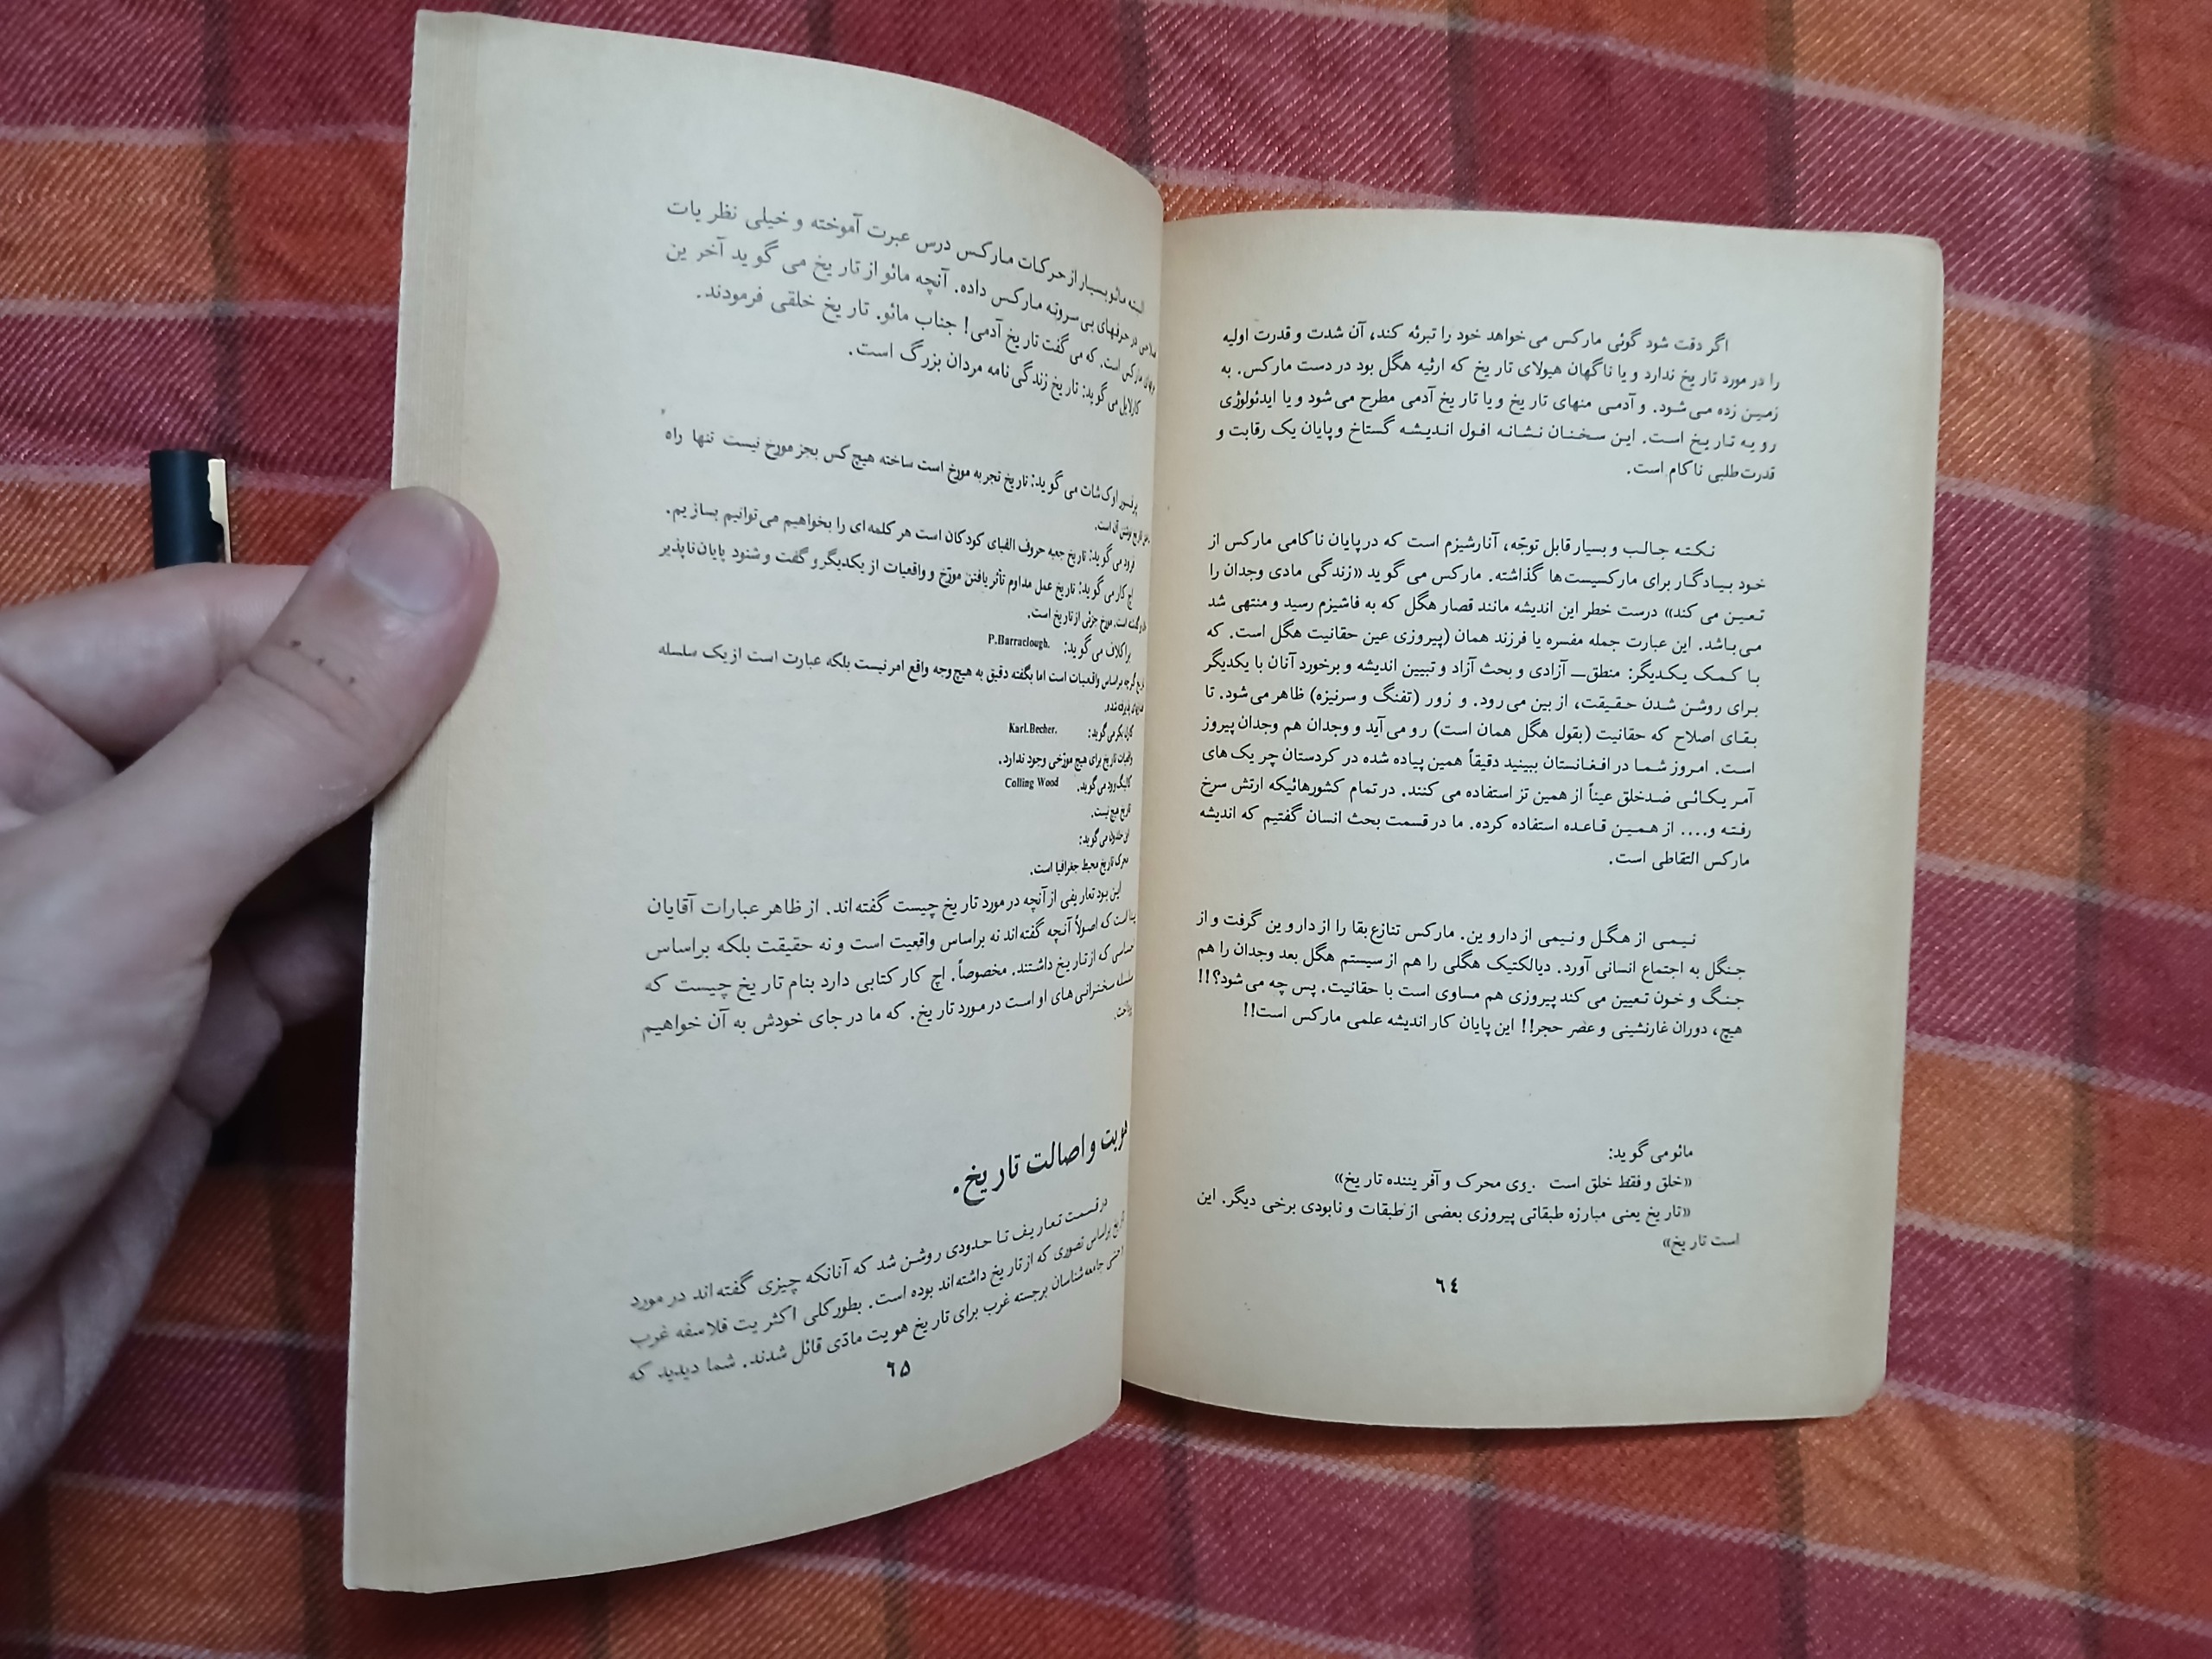 اگر دقت شود گوئی مارکس می‌خواهد خود را تبرئه کند، آن شدت و قدرت اولیه
را در مورد تاریخ ندارد و یا ناگهان هیولای تاریخ که ارثیه هگل بود در دست مارکس. به
زمین زده می‌شود. و آدمی منهای تاریخ و یا تاریخ آدمی مطرح می‌شود و یا ایدئولوژی
رو به تاریخ است. این سخنان نشانه افول اندیشه گستاخ و پایان یک رقابت و
قدرت‌طلبی ناکام است.
نکته جالب و بسیار قابل توجّه، آنارشیزم است که در پایان ناکامی مارکس از
خود بیادگار برای مارکسیست‌ها گذاشته. مارکس می‌گوید «زندگی مادی وجدان را
تعیین می‌کند» درست خطر این اندیشه مانند قصار هگل که به فاشیزم رسید و منتهی شد
می‌باشد. این عبارت جمله مفسره یا فرزند همان (پیروزی عین حقانیت هگل است. که
با کمک یکدیگر: منطق— آزادی و بحث آزاد و تبیین اندیشه و برخورد آنان با یکدیگر
برای روشن شدن حقیقت، از بین می‌رود. و زور (تفنگ و سرنیزه) ظاهر می‌شود. تا
بقای اصلاح که حقانیت (بقول هگل همان است) رو می‌آید و وجدان هم وجدان پیروز
است. امروز شما در افغانستان ببینید دقیقاً همین پیاده شده در کردستان چریک‌های
آمریکائی ضدخلق عیناً از همین تز استفاده می‌کنند. در تمام کشورهائیکه ارتش سرخ
رفته و.... از همین قاعده استفاده کرده. ما در قسمت بحث انسان گفتیم که اندیشه
مارکس التقاطی است.
نیمی از هگل و نیمی از داروین. مارکس تنازع بقا را از داروین گرفت و از
جنگل به اجتماع انسانی آورد. دیالکتیک هگلی را هم از سیستم هگل بعد وجدان را هم
جنگ و خون تعیین می‌کند پیروزی هم مساوی است با حقانیت. پس چه می‌شود؟!!
هیچ، دوران غارنشینی و عصر حجر!! این پایان کار اندیشه علمی مارکس است!!
مائو می‌گوید:
«خلق و فقط خلق است نیروی محرک و آفریننده تاریخ»
«تاریخ یعنی مبارزه طبقاتی پیروزی بعضی از طبقات و نابودی برخی دیگر. این
است تاریخ»
٦٤
البته مائو بسیار از حرکات مارکس درس عبرت آموخته و خیلی نظریات
در حرفهای بی‌سروته مارکس داده. آنچه مائو از تاریخ می‌گوید آخرین
مارکس است. که می‌گفت تاریخ آدمی! جناب مائو. تاریخ خلقی فرمودند.
کارلایل می‌گوید: تاریخ زندگی‌نامه مردان بزرگ است.
پرفسور اوک‌شات می‌گوید: تاریخ تجربه مورخ است ساخته هیچ کس بجز مورخ نیست تنها راه
نوشتن آن است.
فرود می‌گوید: تاریخ جعبه حروف الفبای کودکان است هر کلمه‌ای را بخواهیم می‌توانیم بسازیم.
اچ کار می‌گوید: تاریخ عمل مداوم تأثر یافتن مورّخ و واقعیات از یکدیگر و گفت و شنود پایان‌ناپذیر
گذشته است. مورخ جزئی از تاریخ است.
براکلاف می‌گوید: P.Barraclough.
گرچه براساس واقعیات است اما بگفته دقیق به هیچ‌وجه واقع امر نیست بلکه عبارت است از یک سلسله
پذیرفته شده.
کارل بکر می‌گوید: Karl.Becher.
واقعیات تاریخ برای هیچ مورّخی وجود ندارد.
کالینگ‌وود می‌گوید. Colling Wood
تاریخ هیچ نیست.
ابن خلدون می‌گوید:
محرک تاریخ محیط جغرافیا است.
این بود تعاریفی از آنچه در مورد تاریخ چیست گفته‌اند. از ظاهر عبارات آقایان
است که اصولاً آنچه گفته‌اند نه براساس واقعیت است و نه حقیقت بلکه براساس
که از تاریخ داشتند. مخصوصاً. اچ کار کتابی دارد بنام تاریخ چیست که
سلسله سخنرانی‌های او است در مورد تاریخ. که ما در جای خودش به آن خواهیم
پرداخت.
هویت و اصالت تاریخ.
در قسمت تعاریف تا حدودی روشن شد که آنانکه چیزی گفته‌اند در مورد
تاریخ براساس تصوری که از تاریخ داشته‌اند بوده است. بطورکلی اکثریت فلاسفه غرب
جامعه‌شناسان برجسته غرب برای تاریخ هویت مادّی قائل شدند. شما دیدید که
٦٥